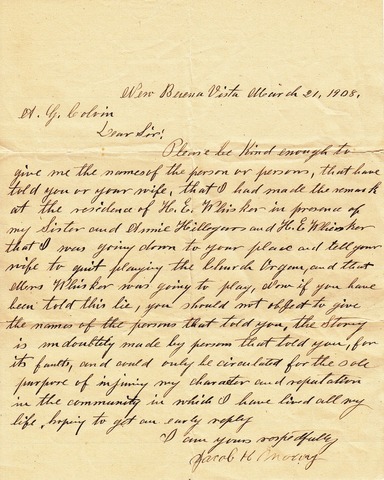 New Buena Vista March 21, 1908.
A. G. Colvin
Dear Sir!
Please be Kind enough to
give me the names of the person or persons, that have
told you or your wife, that I had made the remark
at the residence of H. E. Whisker in presence of
my Sister and Annie Hillegass and H. E. Whisker
that I was going down to your place and tell your
wife to quit playing the Church Organ, and that
Mrs Whisker was going to play, Now if you have
been told this lie, you should not object to give
the names of the persons that told you, the Story
is undoubtely made by persons that told you, for
its faults, and could only be circulated for the sole
purpose of injuring my character and reputation
in the community in which I have lived all my
life, hoping to get an early reply
I am yours respectfully
Jacob H